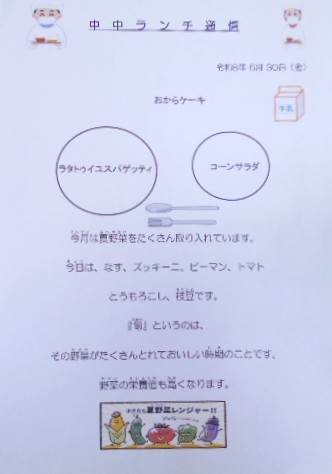 中中ランチ通信
令和8年6月30日（金）
おからケーキ
牛乳
ラタトゥイユスパゲッティ
コーンサラダ
今月は夏野菜をたくさん取り入れています。
今日は、なす、ズッキーニ、ピーマン、トマト
とうもろこし、枝豆です。
『旬』というのは、
その野菜がたくさんとれておいしい時期のことです。
野菜の栄養価も高くなります。
夏野菜レンジャー!!